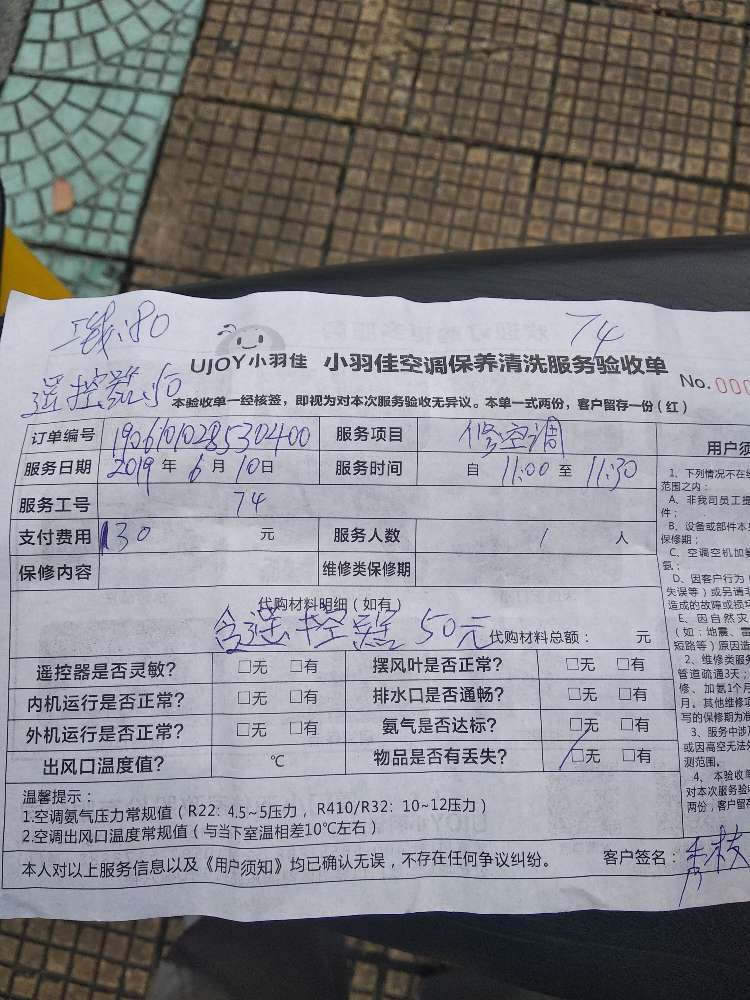 线:80
74
UJOY小羽佳 小羽佳空调保养清洗服务验收单
No.000
遥控器:50
本验收单一经核签，即视为对本次服务验收无异议。本单一式两份，客户留存一份(红)
订单编号 1906101028530400 服务项目 修空调
服务日期 2019年6月10日 服务时间 自11:00至11:30
服务工号 74
支付费用 130 元 服务人数 1 人
保修内容 维修类保修期
代购材料明细(如有)
含遥控器50元 代购材料总额: 元
遥控器是否灵敏? □无 □有 摆风叶是否正常? □无 □有
内机运行是否正常? □无 □有 排水口是否通畅? □无 □有
外机运行是否正常? □无 □有 氨气是否达标? □无 □有
出风口温度值? ℃ 物品是否有丢失? □无 □有
温馨提示:
1.空调氨气压力常规值(R22: 4.5~5压力, R410/R32: 10~12压力)
2.空调出风口温度常规值(与当下室温相差10℃左右)
本人对以上服务信息以及《用户须知》均已确认无误，不存在任何争议纠纷。 客户签名:
用户须
1、下列情况不在
范围之内:
A、非我司员工
件;
B、设备或部件本
保修期;
C、空调空机加
氨;
D、因客户行为(
失误等)或另请非
造成的故障或损
E、因自然灾
(如:地震、雷
短路等)原因造
2、维修类服
管道疏通3天;
修、加氨1个月
月。其他维修项
写的保修期为准
3、服务中涉
或因高空无法
测范围。
4、本验收单
对本次服务验
两份，客户留存